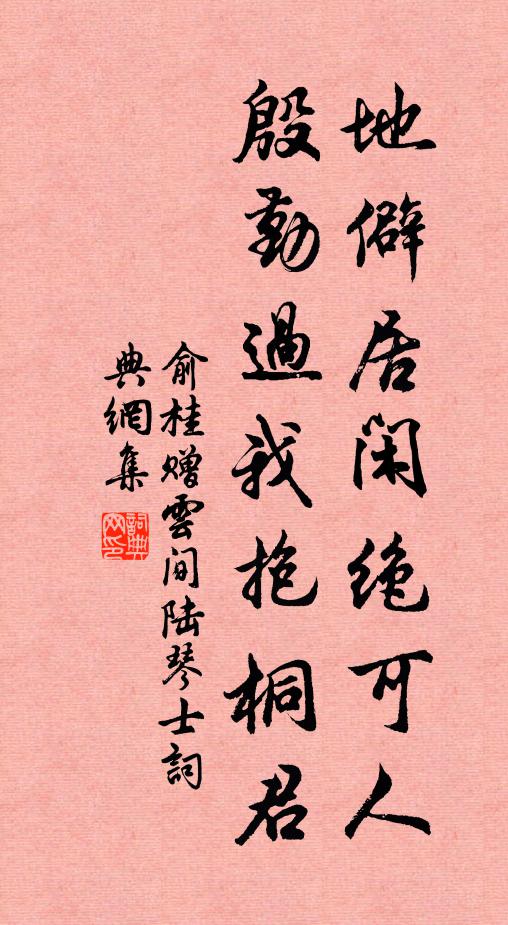 地僻居闲绝可人
殷勤過我抱桐君
俞桂赠雲间陆琴士詞
典網集
詞典
网印